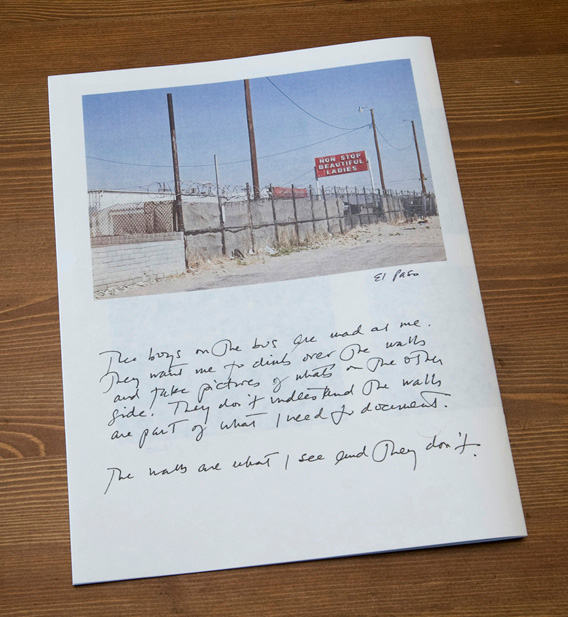 NON STOP
BEAUTIFUL
LADIES
El Paso
The boys on the bus are mad at me.
They want me to climb over the walls
and take pictures of whats on the other
side. They don't understand the walls
are part of what I need to document.
The walls are what I see and they don't.